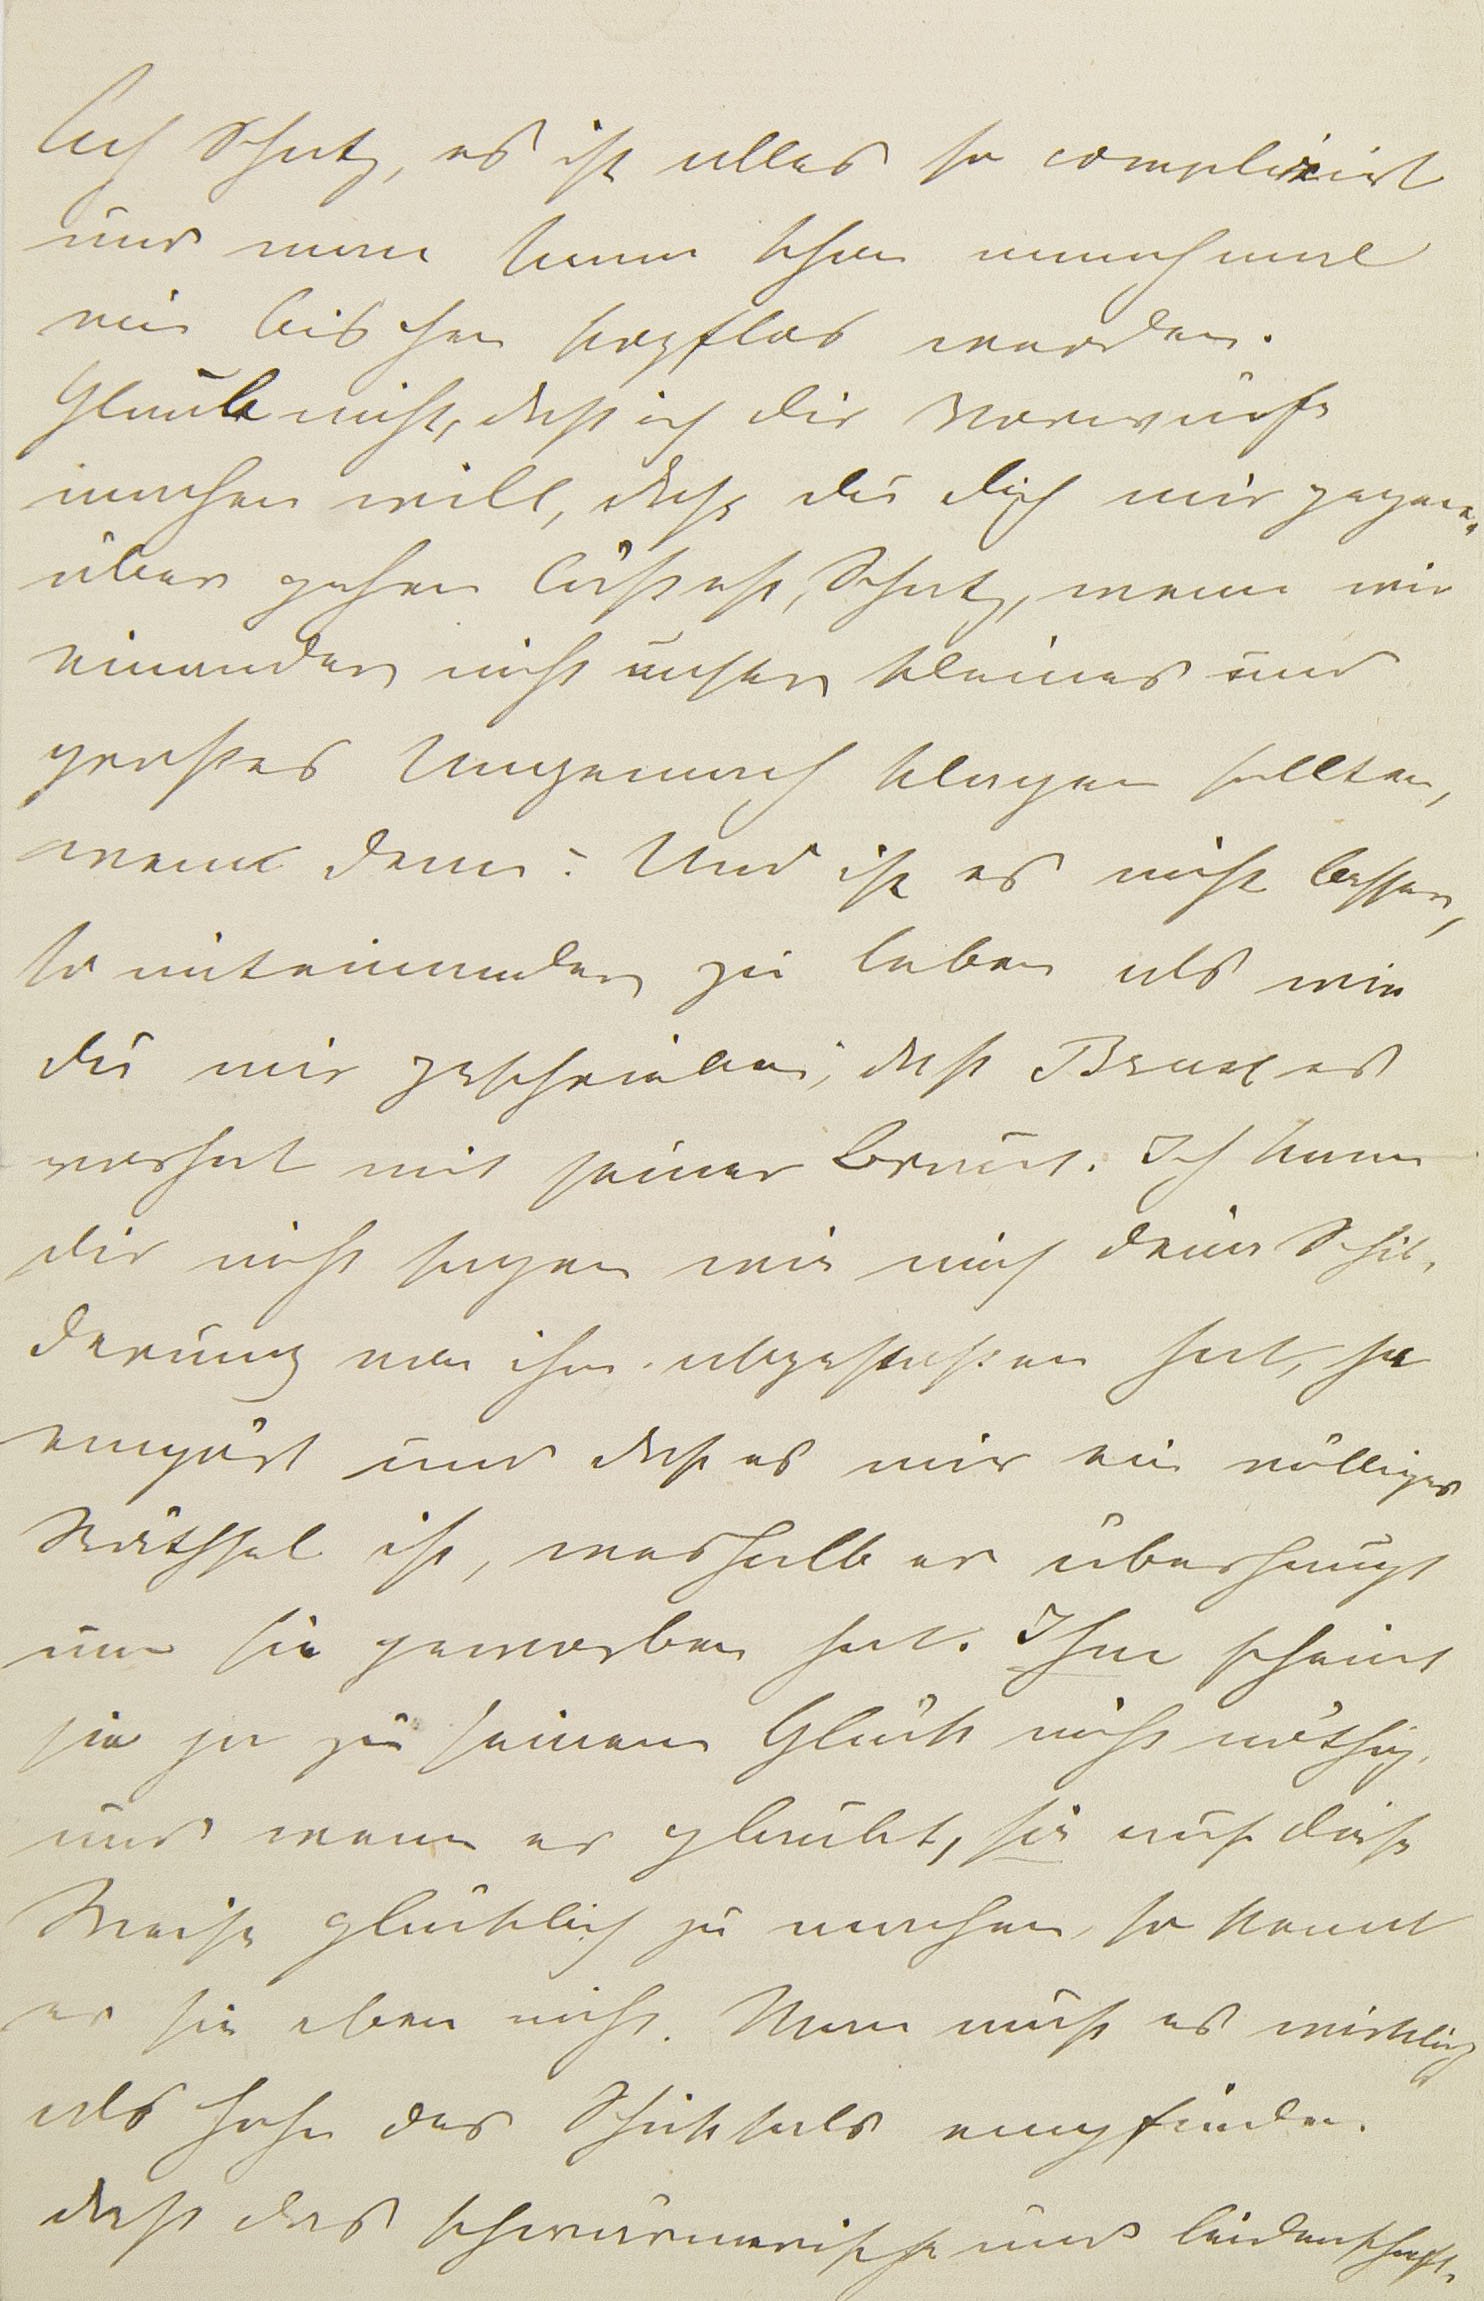 Ach Schatz, es ist alles so complicirt
und man kann schon manchmal
ein bischen kopflos werden.
Glaub nicht, daß ich dir Vorwürfe
machen will, daß du dich mir gegen-
über gehen läßest, Schatz, wenn wir
einander nicht unser kleines und
großes Ungemach klagen sollten,
wem denn? Und ist es nicht besser,
so miteinander zu leben als wie
du mir geschrieben, daß es
verkehrt mit seiner Braut. Ich kann
dir nicht sagen wie mich deine Schil-
derung von ihm abgestoßen hat, ja
empört und daß es mir ein völliges
Räthsel ist, weshalb er überhaupt
um sie geworben hat. Ihm scheint
sie ja zu seinem Glück nicht nöthig,
und wenn er glaubt, sie auf diese
Weise glücklich zu machen, so kennt
er sie eben nicht. Man muß es wirklich
als Hohn des Schicksals empfinden.
daß das schwärmerische und leidenschaft-